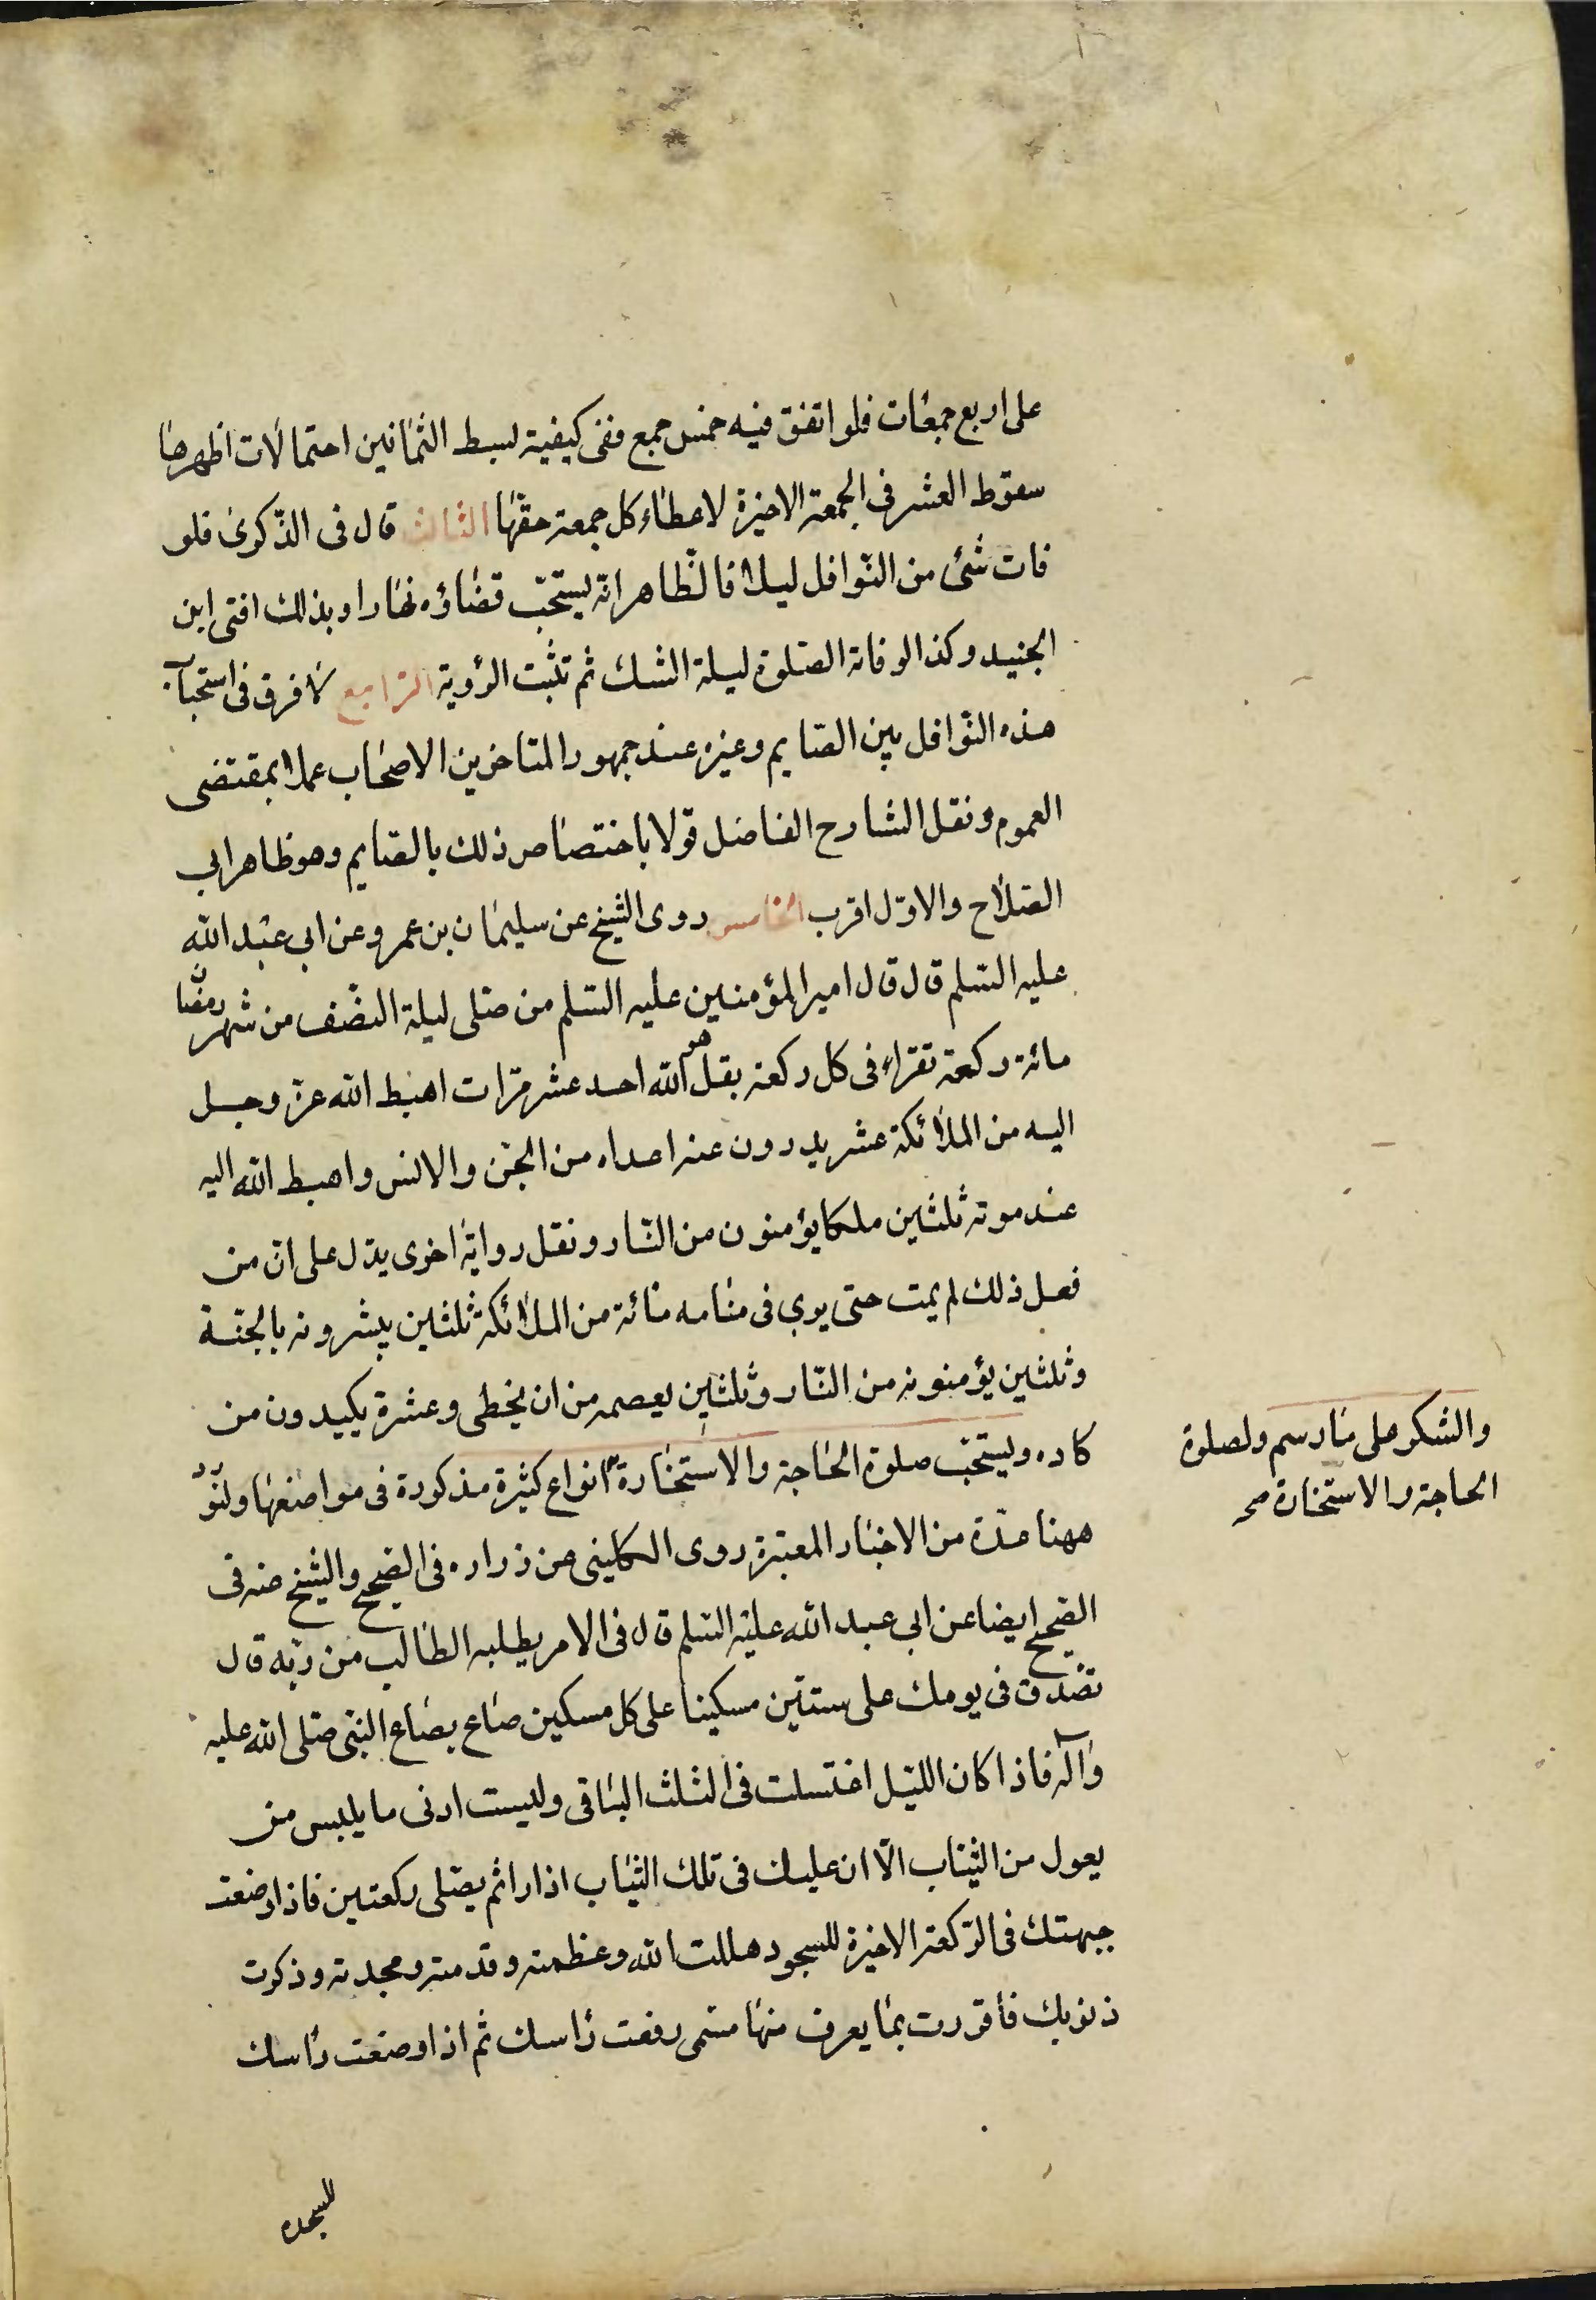 على اربع جمعات فلو اتفق فيه خمس جمع ففى كيفية بسط الثمانين احتمالات اظهرها
سقوط العشر فى الجمعة الاخيرة لاعطاء كل جمعة حقها الثالث قال فى الذكرى فلو
فات شئ من النوافل ليلا فالظاهر انه يستحب قضاؤه نهارا وبذلك افتى ابن
الجنيد وكذا لو فاته الصلوة ليلة الشك ثم تثبت الرؤية الرابع لا فرق فى استحباب
هذه النوافل بين الصايم وغيره عند جمهور المتاخرين الاصحاب عملا بمقتضى
العموم ونقل الشارح الفاضل قولا باختصاص ذلك بالصايم وهو ظاهر ابى
الصلاح والاول اقرب الخامس روى الشيخ عن سليمان بن عمرو عن ابى عبد الله
عليه السلم قال قال امير المؤمنين عليه السلم من صلى ليلة النصف من شهر رمضان
مائة ركعة تقراء فى كل ركعة بقل هو الله احد عشر مرات اهبط الله عز وجل
اليه من الملائكة عشر يدرون عنه اعداه من الجن والانس واهبط الله اليه
عند موته ثلثين ملكا يؤمنون من النار ونقل رواية اخرى يدل على ان من
فعل ذلك لم يمت حتى يرى فى منامه مائة من الملائكة ثلثين يبشرونه بالجنة
وثلثين يؤمنونه من النار وثلثين يعصمه من ان يخطى وعشرة يكيدون من
كاده ويستحب صلوة الحاجة والاستخارة انواع كثيرة مذكورة فى مواضعها ولنورد
والشكر على ما رسم ولصلوة
الحاجة والاستخارة صح
ههنا عدة من الاخبار المعتبرة روى الكلينى عن زراره فى الصحيح والشيخ عنه فى
الصحيح ايضا عن ابى عبد الله عليه السلم قال فى الامر يطلبه الطالب من ربه قال
تصدق فى يومك على ستين مسكينا على كل مسكين صاع بصاع النبى صلى الله عليه
وآله فاذا كان الليل اغتسلت فى الثلث الباقى ولبست ادنى ما يلبس من
يعول من الثياب الا ان عليك فى تلك الثياب ازارا ثم يصلى ركعتين فاذا وضعت
جبهتك فى الركعة الاخيرة للسجود هللت الله وعظمته وقدسته ومجدته وذكرت
ذنوبك فأقررت بما يعرف منها مسمى رفعت راسك ثم اذا وضعت راسك
للسجدة